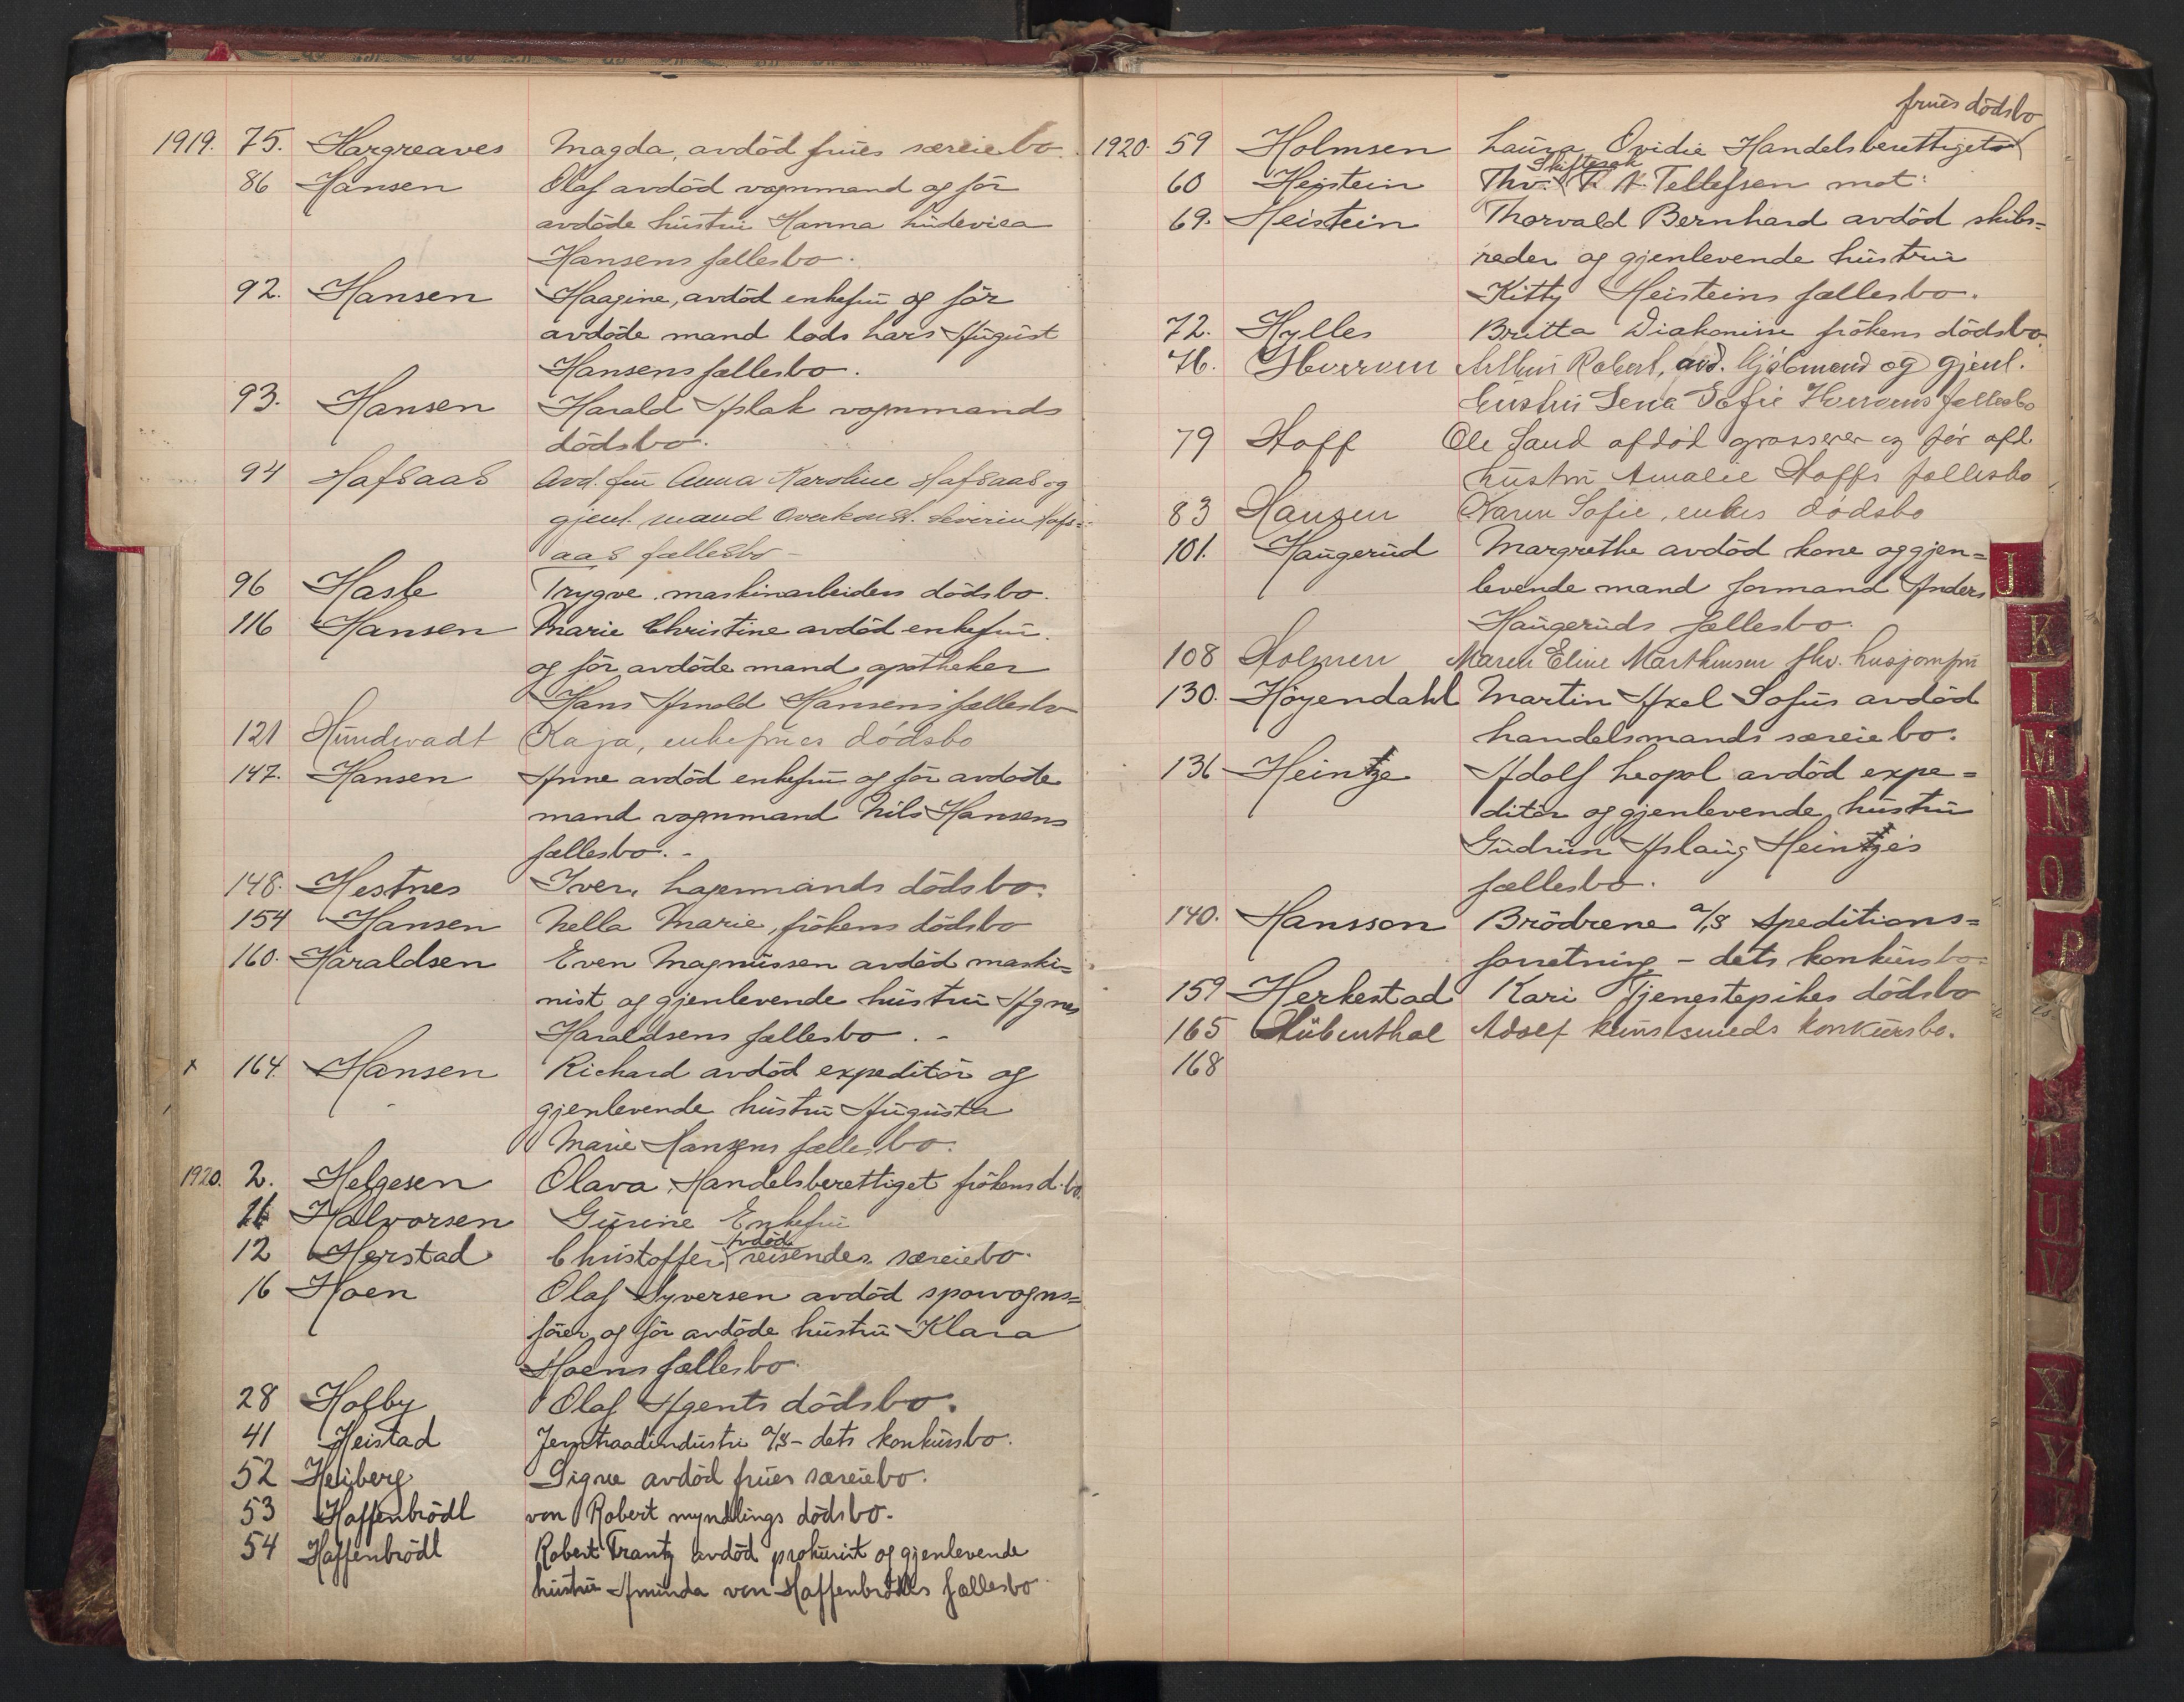 1919. 75. Hargreaves Magda, avdöd frues særeiebo.
86 Hansen Olaf avdöd vognmand og för
avdöde hustru Hanna Ludevica
Hansens fællesbo.
92. Hansen Haagine, avdöd enkefru og för
avdöde mand lods Lars August
Hansens fællesbo.
93. Hansen Harald Aslak vognmands
dödsbo.
94 Hafsaas Avd. fru Anna Karoline Hafsaas og
gjenl. mand Overkonst. Severin Hafs=
aas fællesbo –
96 Hasle Trygve maskinarbeiders dödsbo.
116 Hansen Marie Christine avdöd enkefru.
og för avdöde mand apotheker
Hans Arnold Hansens fællesbo
121 Hundevadt Kaja, enkefrues dödsbo
147. Hansen Anne avdöd enkefru og för avdöde
mand vognmand Nils Hansens
fællesbo. -
148. Hestnes Iver, dödsbo.
154 Hansen Nella Marie, frökens dödsbo
160. Haraldsen Even Magnussen avdöd maski=
nist og gjenlevende hustru Agnes
Haraldsens fællesbo. -
x 164. Hansen Richard avdöd expeditör og
gjenlevende hustru Augusta
Marie Hansens fællesbo.
1920. 2. Helgesen Olava, Handelsberettiget frökens d.bo.
Halvorsen Gurine Enkefru
12 Herstad Christoffer avdöd reisendes særeiebo.
16 Hoen Olaf Syversen avdöd sporvogns=
förer og för avdöde hustru Klara
Hoens fællesbo.
28 Holby Olaf Agents dödsbo.
41 Heistad Jerntraadindustri a/s – dets konkursbo.
52 Heiberg Signe avdöd frues særeiebo.
53 Haffenbrödl von Robert myndlings dödsbo.
54 Haffenbrödl Robert Frantz avdöd prokurist og gjenlevende
hustru Aminda von Haffenbrödls fællesbo
frues dödsbo
1920. 59 Holmsen Laura Ovidie Handelsberettiget
Skiftesak
60 Heistein Thv. T. A. Tellefsen mot:
69. Heistein Thorvald Bernhard avdöd skibs=
reder og gjenlevende hustru
Kitty Heisteins fællesbo.
72. Hylles Britta Diakonisse frökens dödsbo.
76. Arthur Robert, avd. og gjenl.
hustru Lena Sofie fællesbo
79 Hoff Ole Sand afdöd grosserer og för afd.
hustru Amalie Hoffs fællesbo
83 Hansen Karen Sofie, enkes dödsbo
101. Haugerud Margrethe avdöd kone og gjen=
levende mand formand Anders
Haugeruds fællesbo.
108 Holmen Maren Eline Marthinsen fhv. husjomfru
130. Höyendahl Martin Axel Sofus avdöd
handelsmands særeiebo.
136 Heintze Adolf Leopol avdöd expe=
ditör og gjenlevende hustru
Gudrun Aslaug Heintzes
fællesbo.
140. Hansson Brödrene a/s Speditions=
forretning – dets konkursbo.
159 Herkestad Kari Tjenestepikes dödsbo
165 Hübenthal Adolf kunstsmeds konkursbo.
168
J
K
L
M
N
O
P
S
T
U
V
X
Y